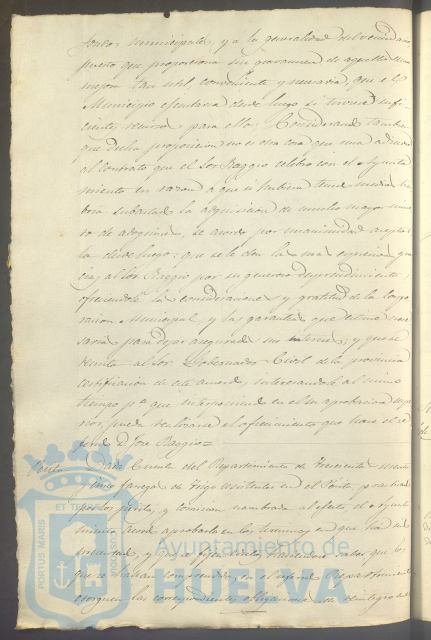 fondos municipales, y a la generalidad del vecindario,
puesto que proporciona sin gravamen de aquellos una
mejora tan util, conveniente y necesaria, que el
Municipio efectuaria desde luego si tuviese sufi-
cientes recursos para ello; Considerando tambien
que dicha proposicion no es otra cosa que una adicion
al Contrato que el Sor. Baggio celebro con el Ayunta-
miento en razon a que si hubiera tenido medios ha-
bria subastado la adquisicion de mucho mayor nume-
ro de adoquines, se acordo por unanimidad aceptar-
la desde luego; que se le den las mas expresivas gra-
cias al Sor. Baggio por su generoso desprendimiento,
ofreciendole la consideracion y gratitud de la Corpo-
racion Municipal y las garantias que estime nece-
sarias para dejar asegurados sus intereses; y que se
remita al Sor. Gobernador Civil de la provincia
certificacion de este acuerdo, interesandole al mismo
tiempo pa. que interponiendo en el su aprobacion supe-
rior, pueda realizarse el ofrecimiento que hace el re-
ferido D. Jose Baggio=
Posito Dada Cuenta del Repartimiento de trescientas
y fanegas de trigo existentes en el Posito, practicado
por los peritos y comision nombrada al efecto, el Ayunta-
miento acordo aprobarlo en los terminos en que ha sido
presentado, y que
que se hallan comprendidos en el
otorguen las correspondientes obligaciones de reintegro
Ayuntamiento de
HUELVA
PORTUS MARIS ET TERRAE CUSTODIA